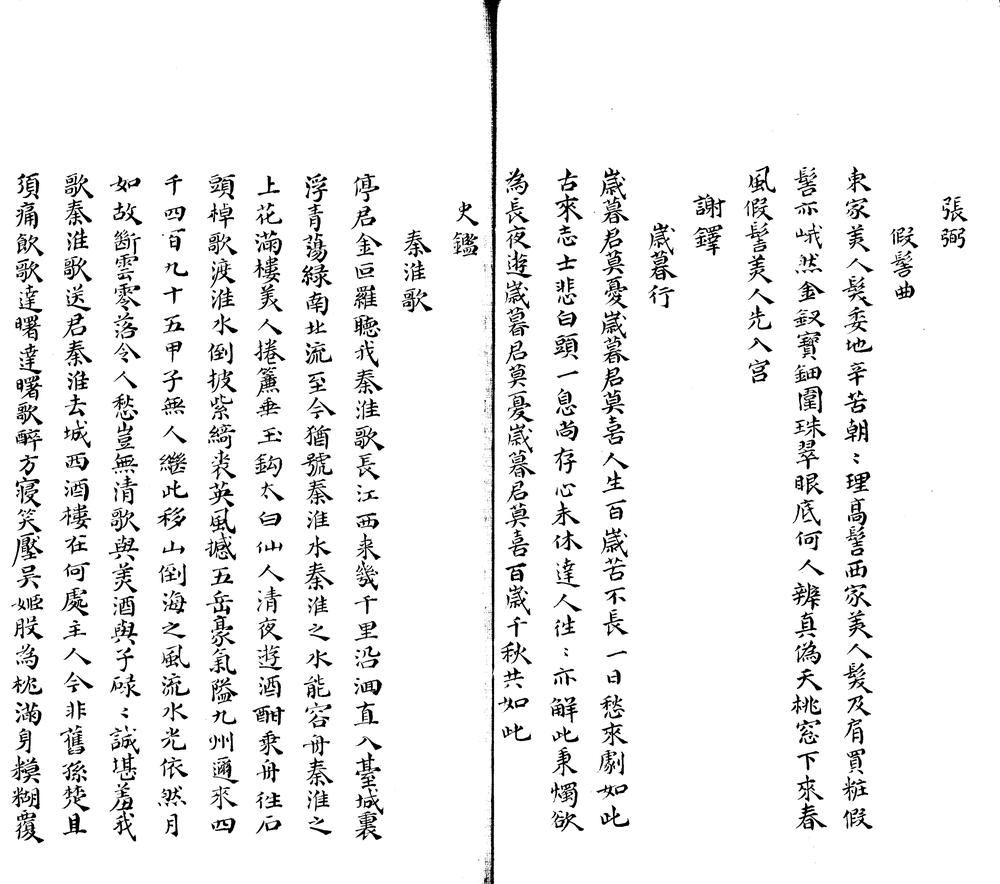 張弼
假髻曲
東家美人髮委地辛苦朝〻理高髻西家美人髮及肩買粧假
髻亦峨然金釵寶鈿圍珠翠眼底何人辨真偽夭桃窓下來春
風假髻美人先入宮
謝鐸
歲暮行
歲暮君莫憂歲暮君莫喜人生百歲苦不長一日愁來劇如此
古來志士悲白頭一息尚存心未休達人徃〻亦解此秉燭欲
為長夜遊歲暮君莫憂歲暮君莫喜百歲千秋共如此
史鑑
秦淮歌
停君金叵羅聽我秦淮歌長江西來幾千里沿洄直入臺城裏
浮青蕩緑南北流至今猶號秦淮水秦淮之水能容舟秦淮之
上花滿樓美人捲簾垂玉鈎太白仙人清夜遊酒酣乘舟徃石
頭棹歌渡淮水倒披紫綺裘英風撼五岳豪氣隘九州邇來四
千四百九十五甲子無人繼此移山倒海之風流水光依然月
如故斷雲零落令人愁豈無清歌與美酒與子碌〻誠堪羞我
歌秦淮歌送君秦淮去城西酒樓在何處主人今非舊孫楚且
須痛飲歌達曙達曙歌醉方寢笑壓吳姬股為枕滿身糢糊覆